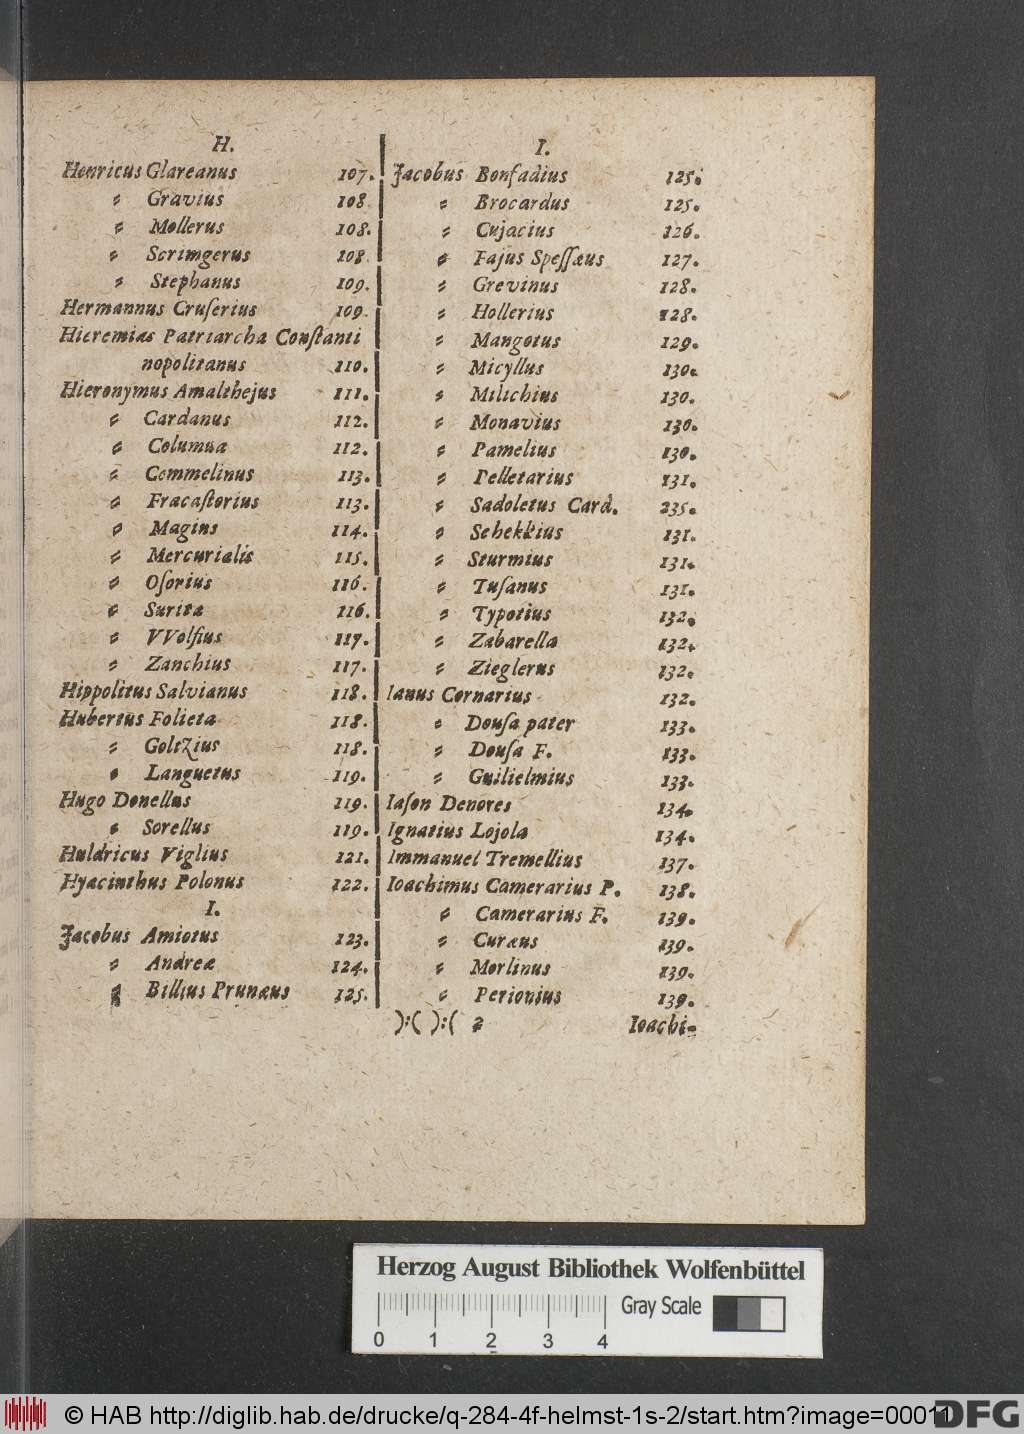 H.
Henricus Glareanus 107.
⸗ Gravius 108
⸗ Mollerus 108.
⸗ Scrimgerus 108
⸗ Stephanus 109.
Hermannus Cruſerius 109.
Hieremias Patriarcha Conſtanti
nopolitanus 110.
Hieronymus Amalthejus 111.
⸗ Cardanus 112.
⸗ Columna 112.
⸗ Commelinus 113.
⸗ Fracaſtorius 113.
⸗ Magius 114.
⸗ Mercurialis 115.
⸗ Oſorius 116.
⸗ Surita 116.
⸗ VVolfius 117.
⸗ Zanchius 117.
Hippolitus Salvianus 118.
Hubertus Folieta 118.
⸗ Goltzius 118.
⸗ Languetus 119.
Hugo Donellus 119.
⸗ Sorellus 119.
Huldricus Viglius 121.
Hyacinthus Polonus 122.
I.
Jacobus Amiotus 123.
⸗ Andreæ 124.
⸗ Billius Prunæus 125.
I.
Jacobus Bonfadius 125.
⸗ Brocardus 125.
⸗ Cujacius 126.
⸗ Fajus Speſſæus 127.
⸗ Grevinus 128.
⸗ Hollerius 128.
⸗ Mangotus 129.
⸗ Micyllus 130.
⸗ Milichius 130.
⸗ Monavius 130.
⸗ Pamelius 130.
⸗ Pelletarius 131.
⸗ Sadoletus Card. 235.
⸗ Schekkius 131.
⸗ Sturmius 131.
⸗ Tuſanus 131.
⸗ Typotius 132.
⸗ Zabarella 132.
⸗ Zieglerus 132.
Ianus Cornarius 132.
⸗ Douſa pater 133.
⸗ Douſa F. 133.
⸗ Guilielmius 133.
Iaſon Denores 134.
Ignatius Lojola 134.
Immanuel Tremellius 137.
Ioachimus Camerarius P. 138.
⸗ Camerarius F. 139.
⸗ Curæus 139.
⸗ Morlinus 139.
⸗ Perionius 139.
):( ):( 2 Ioachi-
Herzog August Bibliothek Wolfenbüttel
Gray Scale
0 1 2 3 4
© HAB http://diglib.hab.de/drucke/q-284-4f-helmst-1s-2/start.htm?image=00011
DFG